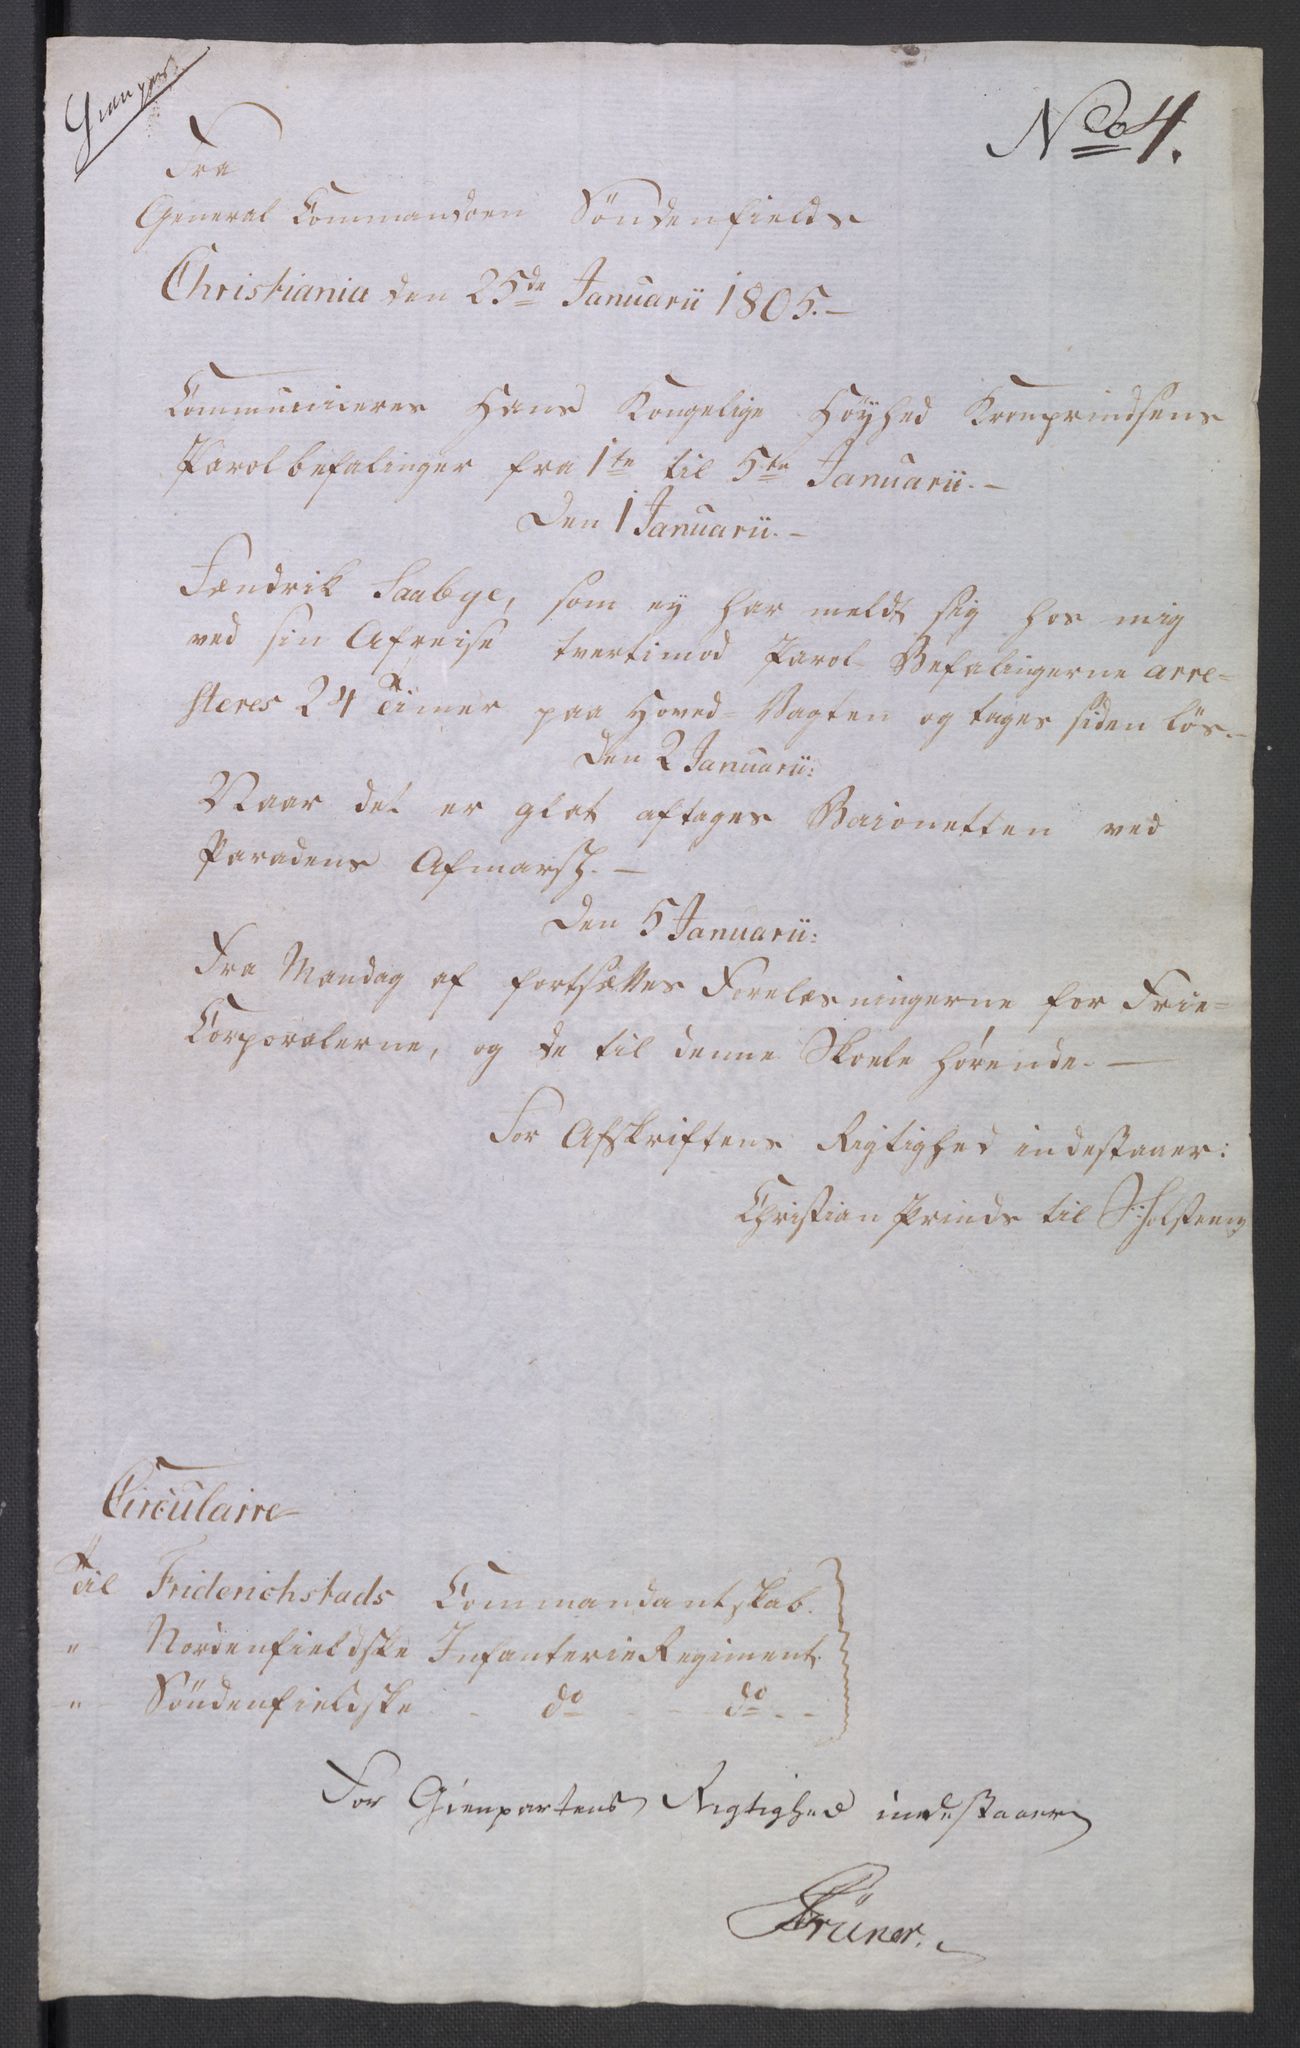 Gienpart
No 4.
Fra
General Commandoen Söndenfields
Christiania den 25de Januarii 1805.-
Communiceres Hans Kongelige Höyhed Kronprindsens
Parolbefalinger fra 1te til 5te Januarii.-
Den 1 Januarii.-
Fændrik Saabye, som ey har meldt sig hos mig
ved sin Afreise tvertimod Parol-Befalingerne arre=
steres 24 Timer paa Hoved-Vagten og tages siden lös.-
Den 2 Januarii:
Naar det er glat aftages Baionetten ved
Paradens Afmarsh.-
Den 5 Januarii:
Fra Mandag af fortsættes Forelæsningerne for Frie=
Corporalerne, og de til denne Skoele hørende.-
For Afskriftens Rigtighed indestaaer:
Christian Prinds til S: Holsteen
Circulaire
Til Friderichstads Commandantskab.
" Nordenfieldske Infanterie Regiment.
" Söndenfieldske - do - - do - -
For Gienpartens Rigtighed indestaaer
Brüner.